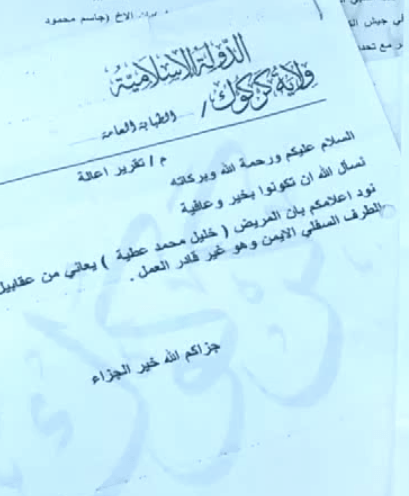 الاخ (جاسم محمود
في جيش
مع
الدولة الاسلامية
ولاية كركوك / الطبابة العامة
م / تقرير اعالة
السلام عليكم ورحمة الله وبركاته
نسأل الله ان تكونوا بخير وعافية
نود اعلامكم بان المريض ( خليل محمد عطية ) يعاني من عقابيل
الطرف السفلي الايمن وهو غير قادر العمل .
جزاكم الله خير الجزاء